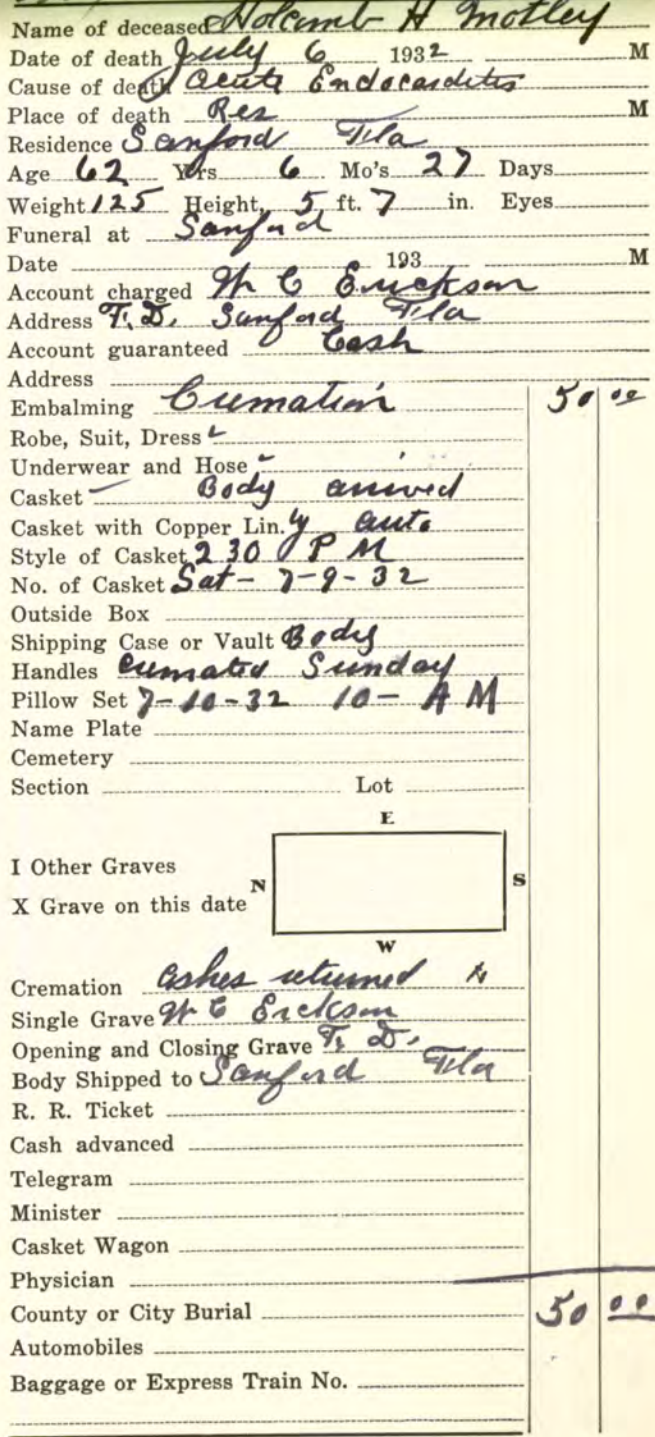 Name of deceased Holcomb H Motley
Date of death July 6 1932 M
Cause of death Acute Endocarditis
Place of death Res M
Residence Sanford Fla
Age 62 Yrs 6 Mo's 27 Days
Weight 125 Height, 5 ft. 7 in. Eyes
Funeral at Sanford
Date 193 M
Account charged W C Erickson
Address F. D. Sanford Fla
Account guaranteed Cash
Address
Embalming Cremation 50 00
Robe, Suit, Dress
Underwear and Hose
Casket Body arrived
Casket with Copper Lin. by auto
Style of Casket 2 30 P M
No. of Casket Sat - 7-9-32
Outside Box
Shipping Case or Vault Body
Handles cremated Sunday
Pillow Set 7-10-32 10- A M
Name Plate
Cemetery
Section Lot
E
I Other Graves
N S
X Grave on this date
W
Cremation Ashes returned to
Single Grave W C Erickson
Opening and Closing Grave F. D.
Body Shipped to Sanford Fla
R. R. Ticket
Cash advanced
Telegram
Minister
Casket Wagon
Physician
County or City Burial 50 00
Automobiles
Baggage or Express Train No.